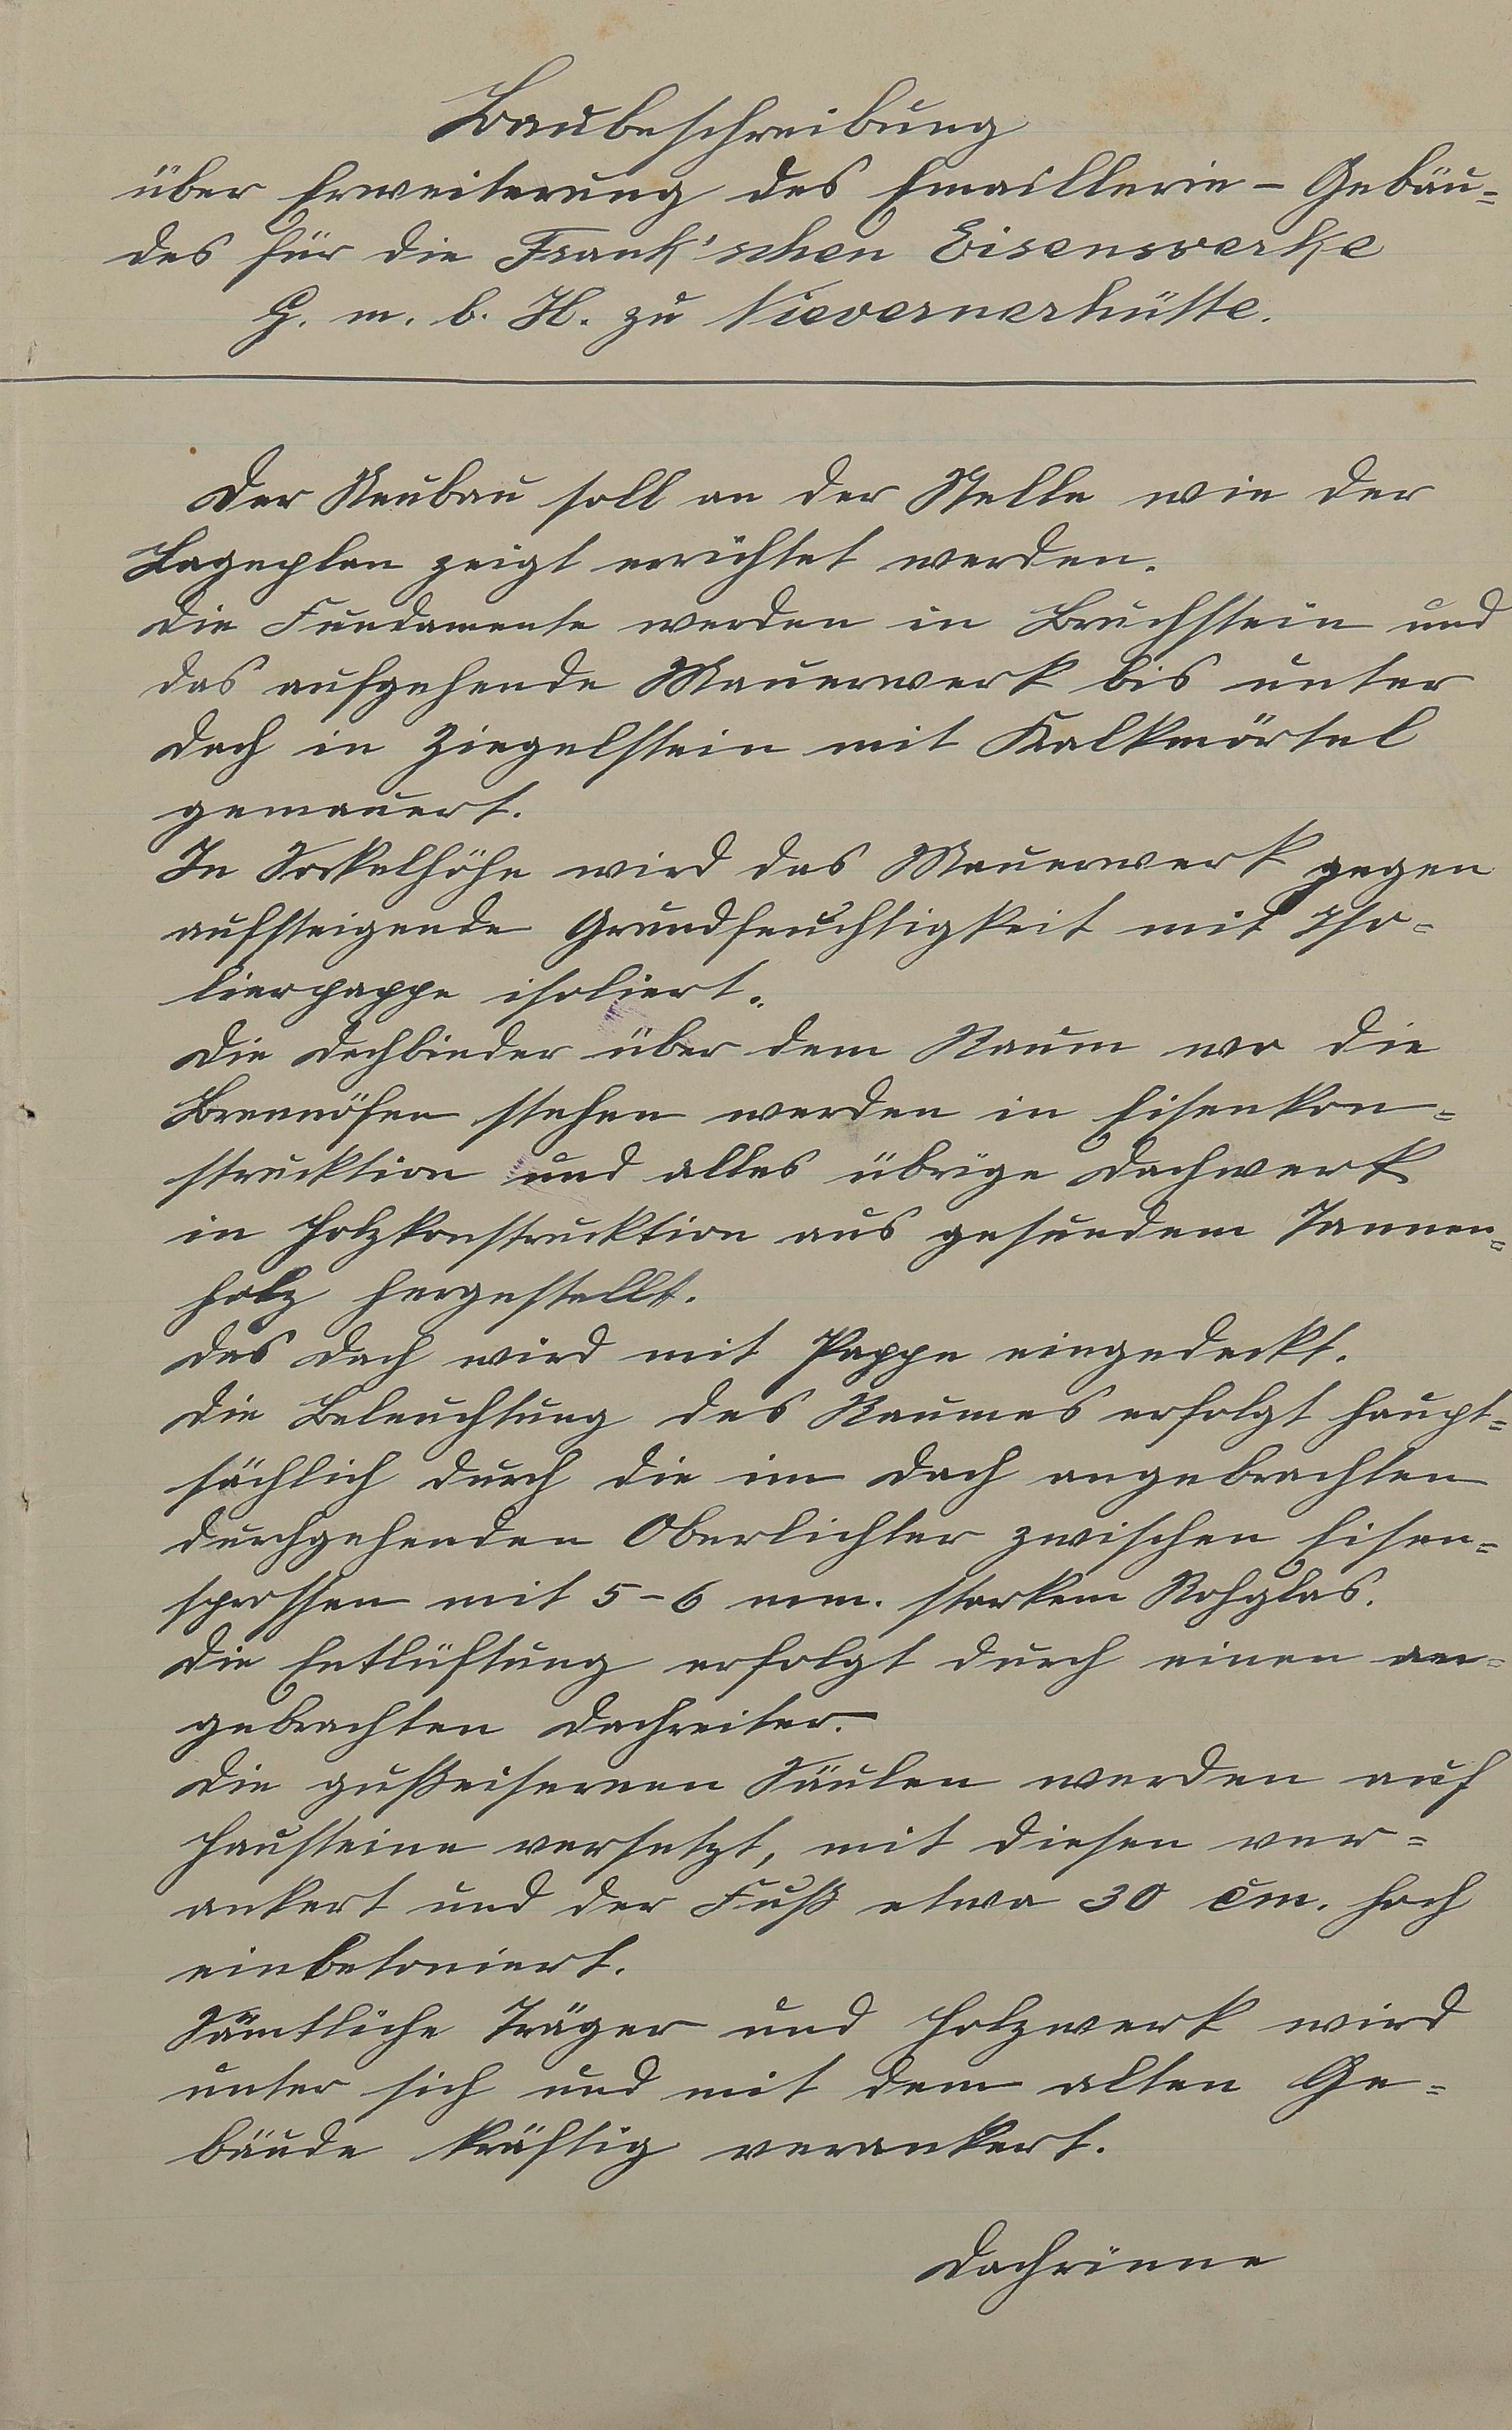 Baubeschreibung
über Erweiterung des Emaillerie - Gebäu=
des für die Frank'schen Eisenwerke
G. m. b. H. zu Nievernerhütte.
Der Neubau soll an der Stelle wie der
Lageplan zeigt errichtet werden.
Die Fundamente werden in Bruchstein und
das aufgehende Mauerwerk bis unter
Dach in Ziegelstein mit Kalkmörtel
gemauert.
In Sockelhöhe wird das Mauerwerk gegen
aufsteigende Grundfeuchtigkeit mit Iso=
lierpappe isoliert.
Die Dachbinder über dem Raum wo die
Brennöfen stehen werden in Eisenkon=
strucktion und alles übrige Dachwerk
in Holzkonstrucktion aus gesundem Tannen=
holz hergestellt.
Das Dach wird mit Pappe eingedeckt.
Die Beleuchtung des Raumes erfolgt haupt=
sächlich durch die im Dach angebrachten
durchgehenden Oberlichter zwischen Eisen=
sprossen mit 5-6 mm. starkem Rohglas.
Die Entlüftung erfolgt durch einen an=
gebrachten Dachreiter.
Die gußeisernen Säulen werden auf
Hausteine versetzt, mit diesen ver=
ankert und der Fuß etwa 30 cm. hoch
einbetoniert.
Sämtliche Träger und Holzwerk wird
unter sich und mit dem alten Ge=
bäude kräftig verankert.
Dachrinne